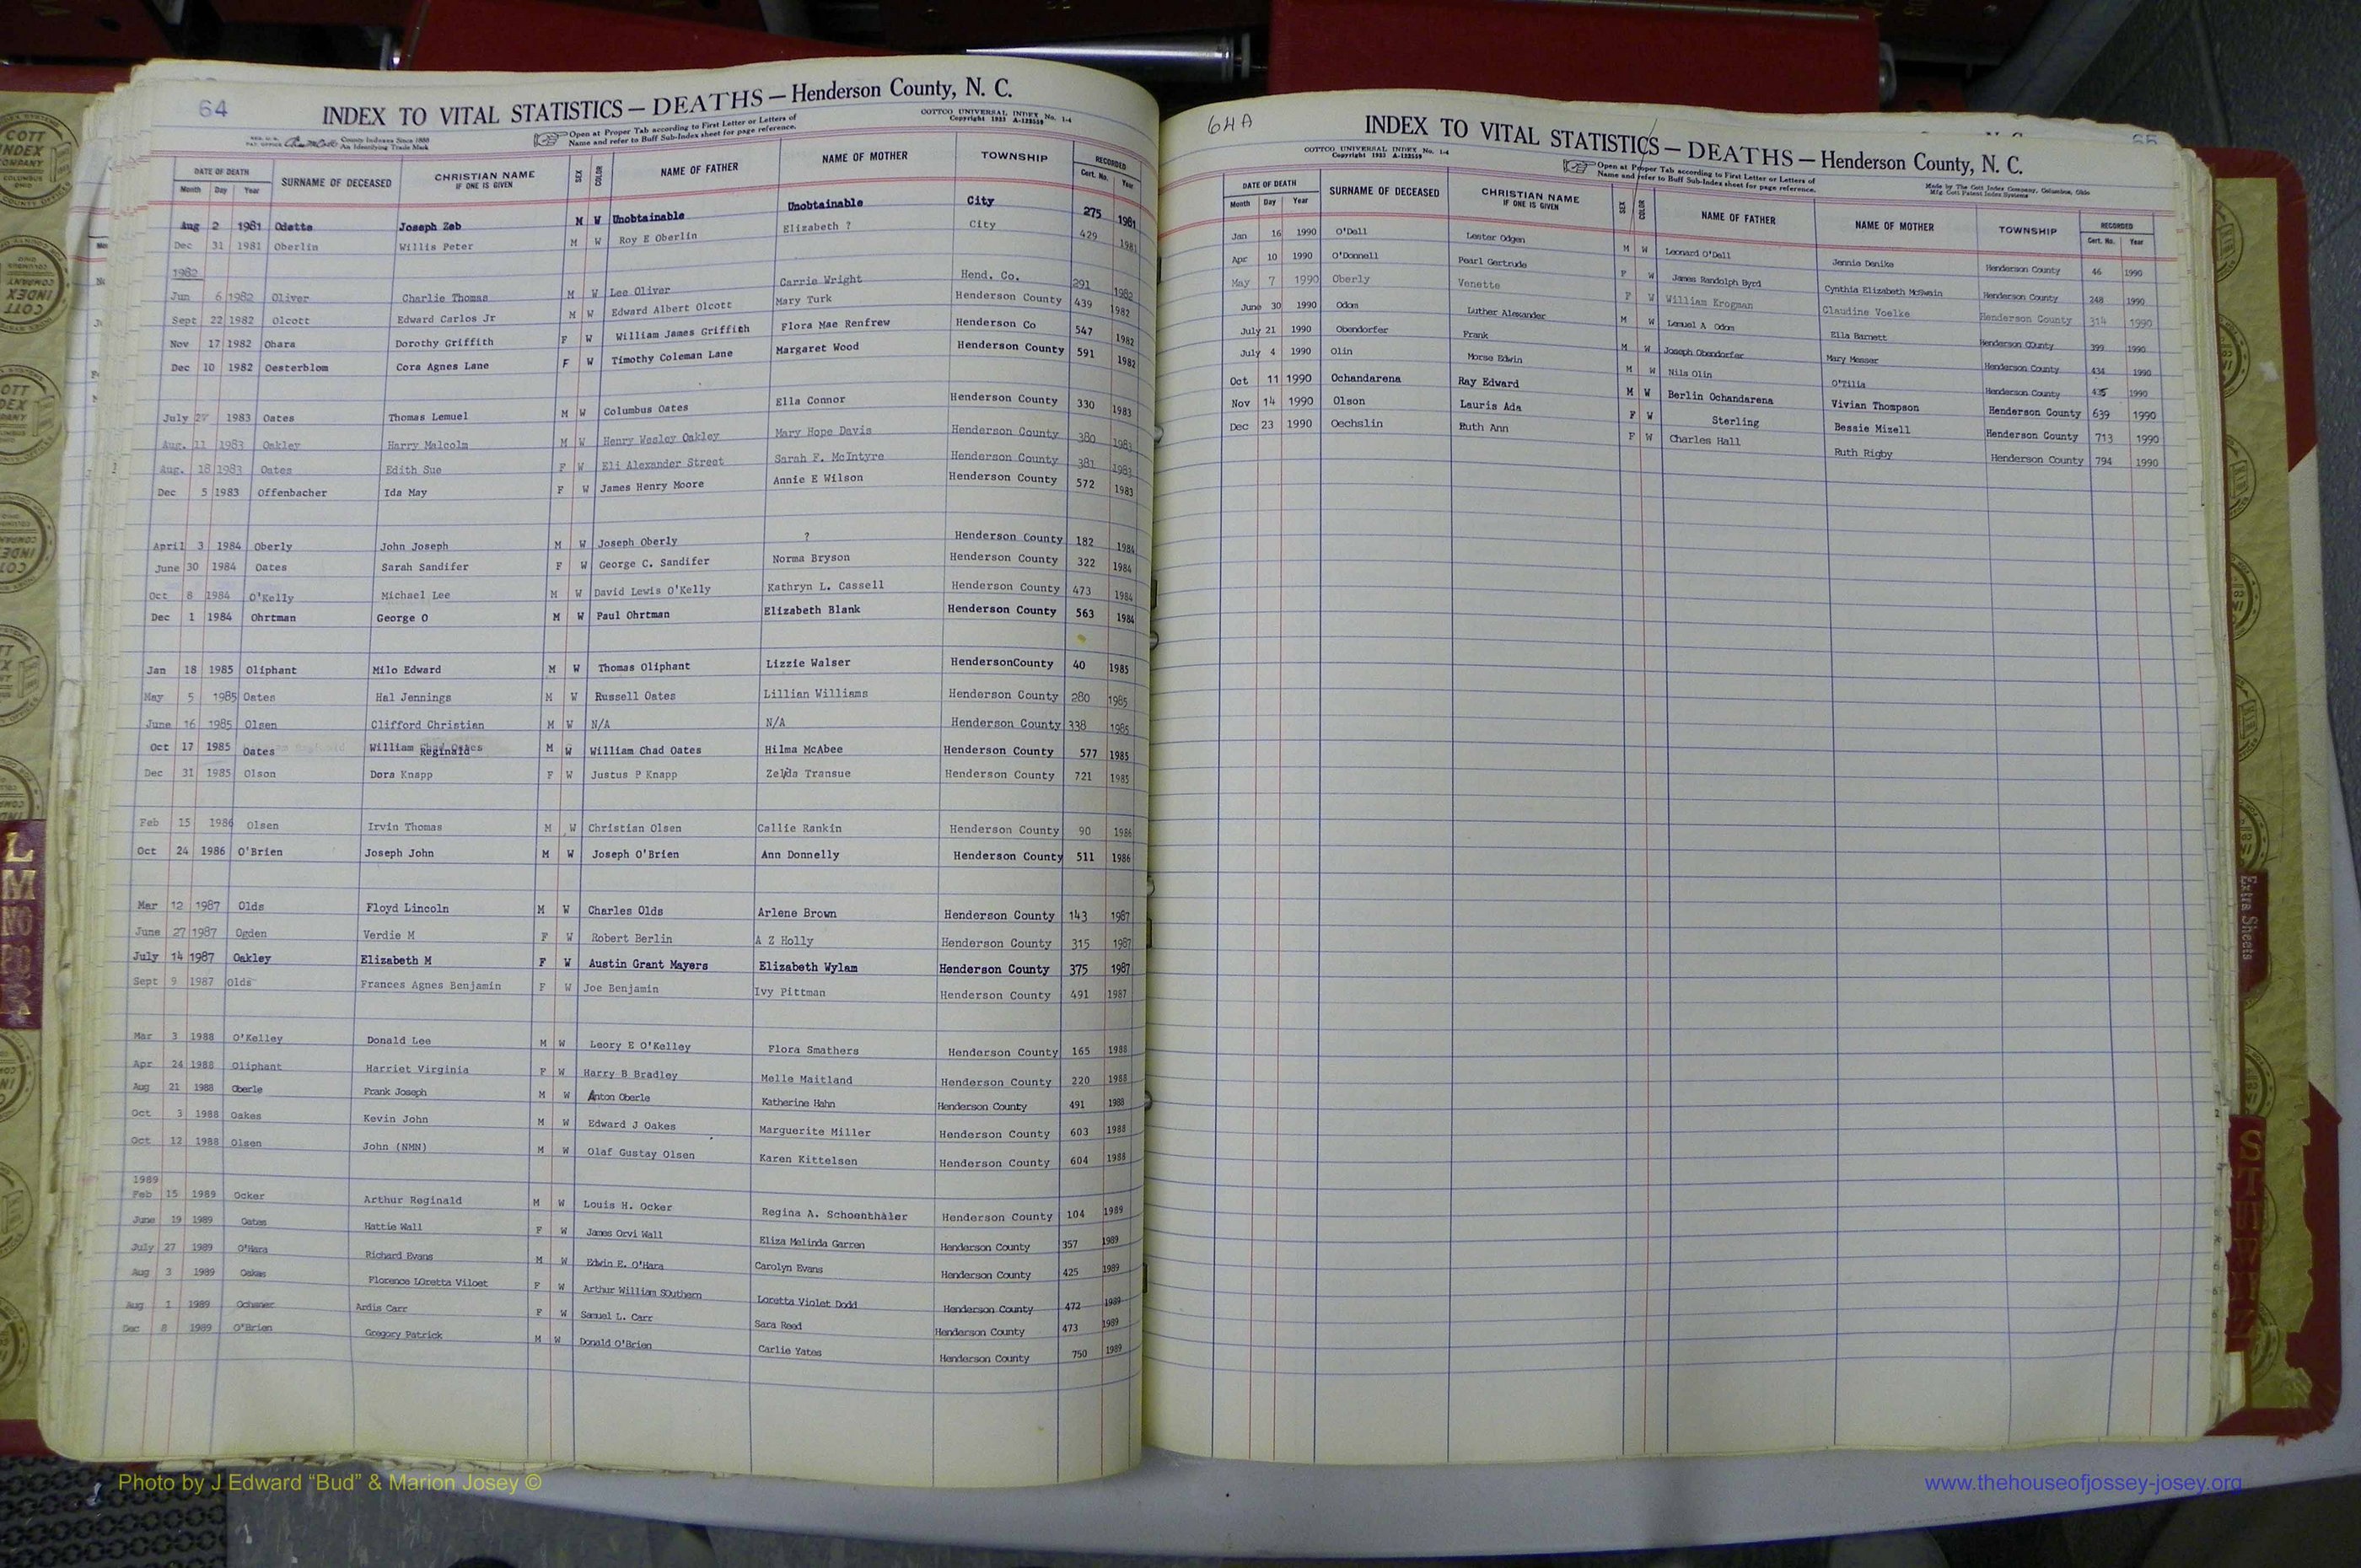 64
INDEX TO VITAL STATISTICS — DEATHS — Henderson County, N. C.
COTTCO UNIVERSAL INDEX No. 1-4
Copyright 1933 A-123559
County Indexes Since 1888
An Identifying Trade Mark
Open at Proper Tab according to First Letter or Letters of
Name and refer to Buff Sub-Index sheet for page reference.
DATE OF DEATH SURNAME OF DECEASED CHRISTIAN NAME IF ONE IS GIVEN SEX COLOR NAME OF FATHER NAME OF MOTHER TOWNSHIP RECORDED
Month Day Year Cert. No. Year
Aug 2 1981 Odette Joseph Zeb M W Unobtainable Unobtainable City 275 1981
Dec 31 1981 Oberlin Willis Peter M W Roy E Oberlin Elizabeth ? City 429 1981
1982
Jun 6 1982 Oliver Charlie Thomas M W Lee Oliver Carrie Wright Hend. Co. 291 1982
Sept 22 1982 Olcott Edward Carlos Jr M W Edward Albert Olcott Mary Turk Henderson County 439 1982
Nov 17 1982 Ohara Dorothy Griffith F W William James Griffith Flora Mae Renfrew Henderson Co 547 1982
Dec 10 1982 Oesterblom Cora Agnes Lane F W Timothy Coleman Lane Margaret Wood Henderson County 591 1982
July 27 1983 Oates Thomas Lemuel M W Columbus Oates Ella Connor Henderson County 330 1983
Aug. 11 1983 Oakley Harry Malcolm M W Henry Wesley Oakley Mary Hope Davis Henderson County 380 1983
Aug. 18 1983 Oates Edith Sue F W Eli Alexander Street Sarah F. McIntyre Henderson County 381 1983
Dec 5 1983 Offenbacher Ida May F W James Henry Moore Annie E Wilson Henderson County 572 1983
April 3 1984 Oberly John Joseph M W Joseph Oberly ? Henderson County 182 1984
June 30 1984 Oates Sarah Sandifer F W George C. Sandifer Norma Bryson Henderson County 322 1984
Oct 8 1984 O'Kelly Michael Lee M W David Lewis O'Kelly Kathryn L. Cassell Henderson County 473 1984
Dec 1 1984 Ohrtman George O M W Paul Ohrtman Elizabeth Blank Henderson County 563 1984
Jan 18 1985 Oliphant Milo Edward M W Thomas Oliphant Lizzie Walser HendersonCounty 40 1985
May 5 1985 Oates Hal Jennings M W Russell Oates Lillian Williams Henderson County 280 1985
June 16 1985 Olsen Clifford Christian M W N/A N/A Henderson County 338 1985
Oct 17 1985 Oates William Reginald M W William Chad Oates Hilma McAbee Henderson County 577 1985
Dec 31 1985 Olson Dora Knapp F W Justus P Knapp Zelda Transue Henderson County 721 1985
Feb 15 1986 Olsen Irvin Thomas M W Christian Olsen Callie Rankin Henderson County 90 1986
Oct 24 1986 O'Brien Joseph John M W Joseph O'Brien Ann Donnelly Henderson County 511 1986
Mar 12 1987 Olds Floyd Lincoln M W Charles Olds Arlene Brown Henderson County 143 1987
June 27 1987 Ogden Verdie M F W Robert Berlin A Z Holly Henderson County 315 1987
July 14 1987 Oakley Elizabeth M F W Austin Grant Mayers Elizabeth Wylam Henderson County 375 1987
Sept 9 1987 Olds Frances Agnes Benjamin F W Joe Benjamin Ivy Pittman Henderson County 491 1987
Mar 3 1988 O'Kelley Donald Lee M W Leory E O'Kelley Flora Smathers Henderson County 165 1988
Apr 24 1988 Oliphant Harriet Virginia F W Harry B Bradley Melle Maitland Henderson County 220 1988
Aug 21 1988 Oberle Frank Joseph M W Anton Oberle Katherine Hahn Henderson County 491 1988
Oct 3 1988 Oakes Kevin John M W Edward J Oakes Marguerite Miller Henderson County 603 1988
Oct 12 1988 Olsen John (NMN) M W Olaf Gustay Olsen Karen Kittelsen Henderson County 604 1988
1989
Feb 15 1989 Ocker Arthur Reginald M W Louis H. Ocker Regina A. Schoenthaler Henderson County 104 1989
June 19 1989 Oates Hattie Wall F W James Orvi Wall Eliza Melinda Garren Henderson County 357 1989
July 27 1989 O'Hara Richard Evans M W Edwin E. O'Hara Carolyn Evans Henderson County 425 1989
Aug 3 1989 Oakes Florence LOretta Viloet F W Arthur William SOuthern Loretta Violet Dodd Henderson County 472 1989
Aug 1 1989 Ochsner Ardis Carr F W Samuel L. Carr Sara Reed Henderson County 473 1989
Dec 8 1989 O'Brien Gregory Patrick M W Donald O'Brien Carlie Yates Henderson County 750 1989
64A
INDEX TO VITAL STATISTICS — DEATHS — Henderson County, N. C.
65
COTTCO UNIVERSAL INDEX No. 1-4
Copyright 1933 A-123559
Open at Proper Tab according to First Letter or Letters of
Name and refer to Buff Sub-Index sheet for page reference.
Made by The Cott Index Company, Columbus, Ohio
Mfg. Cott Patent Index Systems
DATE OF DEATH SURNAME OF DECEASED CHRISTIAN NAME IF ONE IS GIVEN SEX COLOR NAME OF FATHER NAME OF MOTHER TOWNSHIP RECORDED
Month Day Year Cert. No. Year
Jan 16 1990 O'Dell Lester Odgen M W Leonard O'Dell Jennie Denike Henderson County 46 1990
Apr 10 1990 O'Donnell Pearl Gertrude F W James Randolph Byrd Cynthia Elizabeth McSwain Henderson County 248 1990
May 7 1990 Oberly Venette F W William Krogman Claudine Voelke Henderson County 314 1990
June 30 1990 Odom Luther Alexander M W Lemuel A Odom Ella Barnett Henderson COunty 399 1990
July 21 1990 Obendorfer Frank M W Joseph Obendorfer Mary Messer Henderson County 434 1990
July 4 1990 Olin Morse Edwin M W Nils Olin O'Tilia Henderson County 435 1990
Oct 11 1990 Ochandarena Ray Edward M W Berlin Ochandarena Vivian Thompson Henderson County 639 1990
Nov 14 1990 Olson Lauris Ada F W Sterling Bessie Mizell Henderson County 713 1990
Dec 23 1990 Oechslin Ruth Ann F W Charles Hall Ruth Rigby Henderson County 794 1990
Extra Sheets
L
M
S
T
Photo by J Edward “Bud” & Marion Josey ©
www.thehouseofjossey-josey.org